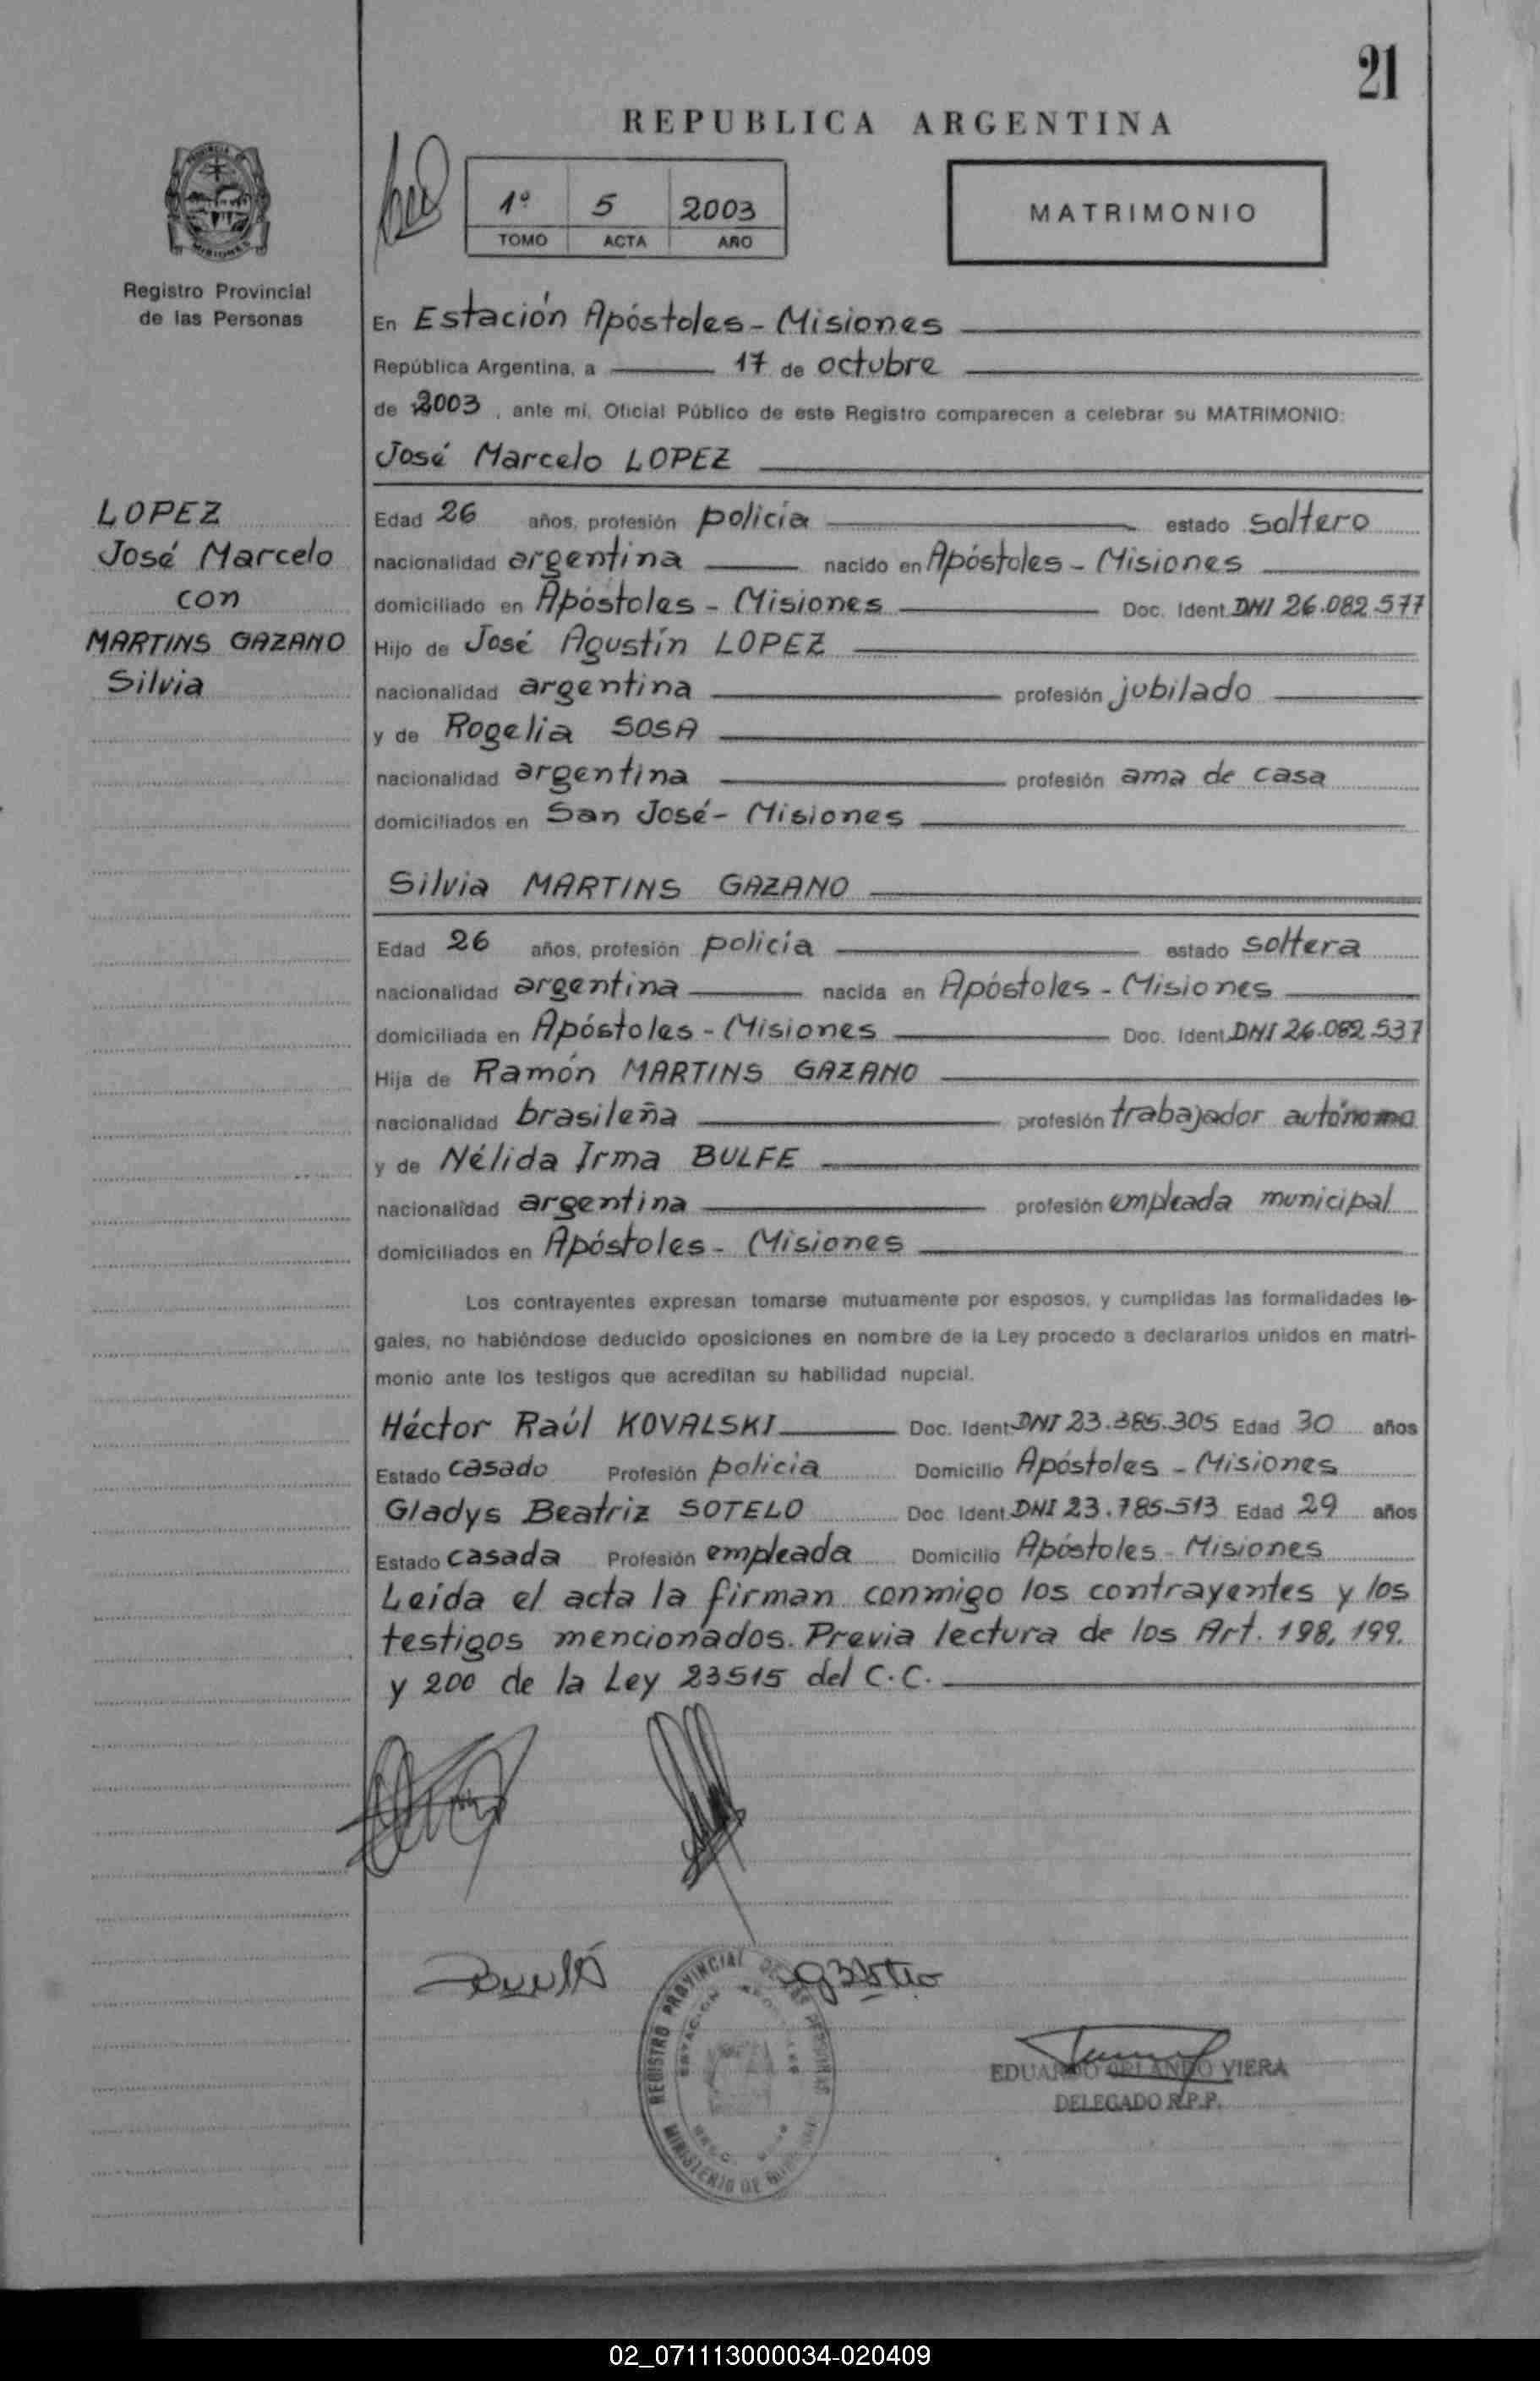 21
REPUBLICA ARGENTINA
1º 5 2003
TOMO ACTA AÑO
MATRIMONIO
PROVINCIA DE
MISIONES
Registro Provincial
de las Personas
LOPEZ
José Marcelo
con
MARTINS GAZANO
Silvia
En Estación Apóstoles - Misiones
República Argentina, a 17 de octubre
de 2003, ante mí, Oficial Público de este Registro comparecen a celebrar su MATRIMONIO:
José Marcelo LOPEZ
Edad 26 años, profesión policía estado soltero
nacionalidad argentina nacido en Apóstoles - Misiones
domiciliado en Apóstoles - Misiones Doc. Ident. DNI 26.082.577
Hijo de José Agustín LOPEZ
nacionalidad argentina profesión jubilado
y de Rogelia SOSA
nacionalidad argentina profesión ama de casa
domiciliados en San José - Misiones
Silvia MARTINS GAZANO
Edad 26 años, profesión policía estado soltera
nacionalidad argentina nacida en Apóstoles - Misiones
domiciliada en Apóstoles - Misiones Doc. Ident. DNI 26.082.537
Hija de Ramón MARTINS GAZANO
nacionalidad brasileña profesión trabajador autónomo
y de Nélida Irma BULFE
nacionalidad argentina profesión empleada municipal
domiciliados en Apóstoles - Misiones
Los contrayentes expresan tomarse mutuamente por esposos, y cumplidas las formalidades le-
gales, no habiéndose deducido oposiciones en nombre de la Ley procedo a declararlos unidos en matri-
monio ante los testigos que acreditan su habilidad nupcial.
Héctor Raúl KOVALSKI Doc. Ident. DNI 23.385.305 Edad 30 años
Estado casado Profesión policia Domicilio Apóstoles - Misiones
Gladys Beatriz SOTELO Doc. Ident. DNI 23.785.513 Edad 29 años
Estado casada Profesión empleada Domicilio Apóstoles - Misiones
Leída el acta la firman conmigo los contrayentes y los
testigos mencionados. Previa lectura de los Art. 198, 199.
y 200 de la Ley 23515 del C.C.
REGISTRO PROVINCIAL DE LAS PERSONAS
ESTACION APOSTOLES
MINISTERIO DE
EDUARDO ORLANDO VIERA
DELEGADO R.P.P.
02_071113000034-020409